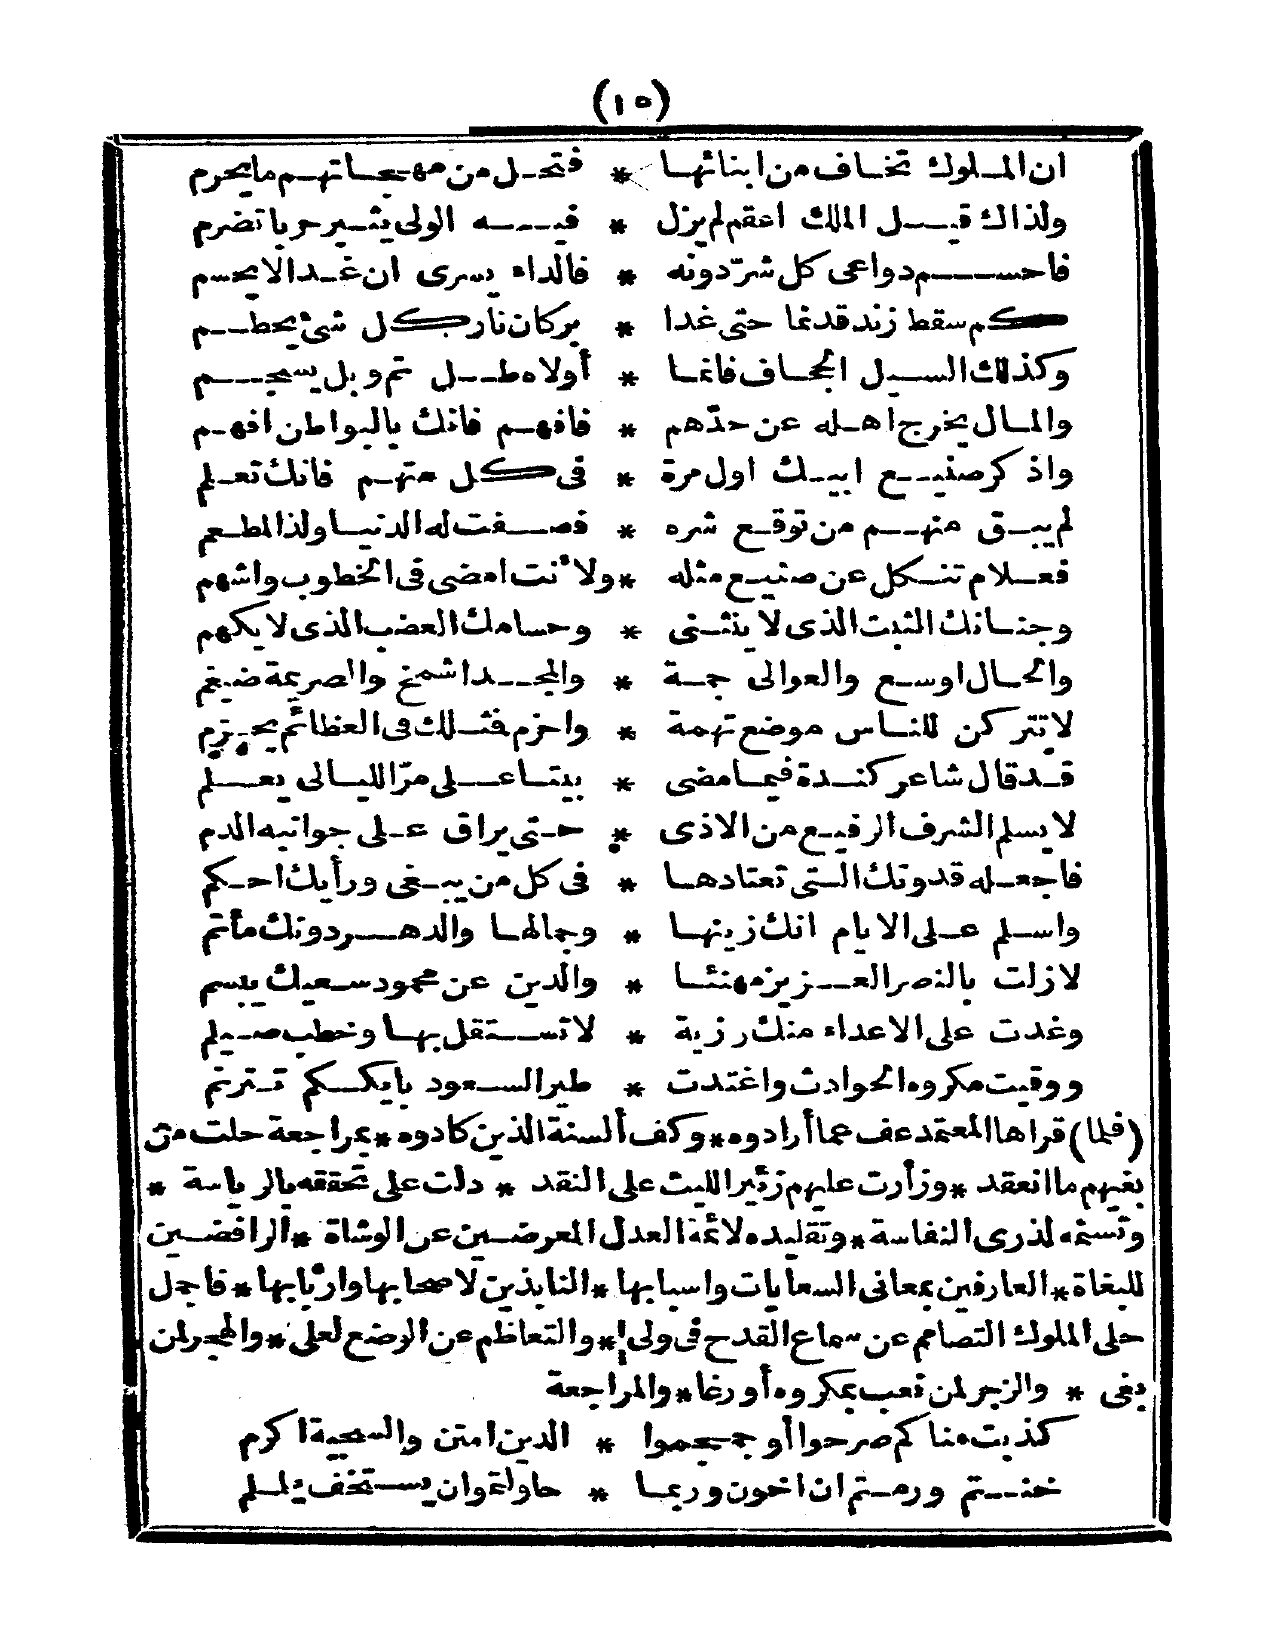 (١٥)
ان الملوك تخاف من ابنائها * فتحل من مهجاتهم ما يحرم
ولذاك قيل الملك اعقم لم يزل * فيه الولى يثير حربا تضرم
فاحسم دواعى كل شر دونه * فالداء يسرى ان غدا لا يحسم
كم سقط زند قد نما حتى غدا * بركان نار كل شئ يحطم
وكذلك السيل الجحاف فانما * أولاه طل ثم وبل يسجم
والمال يخرج اهله عن حدّهم * فافهم فانك بالبواطن افهم
واذكر صنيع ابيك اول مرة * فى كل متهم فانك تعلم
لم يبق منهم من توقع شره * فصفت له الدنيا ولذ المطعم
فعلام تنكل عن صنيع مثله * ولأنت امضى فى الخطوب واشهم
وجنانك الثبت الذى لا ينثنى * وحسامك العضب الذى لا يكهم
والحال اوسع والعوالى جمة * والمجد اشمخ والصريمة ضيغم
لا تتركن للناس موضع تهمة * واحزم فمثلك فى العظائم يحزم
قد قال شاعر كندة فيما مضى * بيتا على مرّ الليالى يعلم
لا يسلم الشرف الرفيع من الاذى * حتى يراق على جوانبه الدم
فاجعله قدوتك التى تعتادها * فى كل من يبغى ورأيك احكم
واسلم على الايام انك زينها * وجمالها والدهر دونك مأتم
لا زلت بالنصر العزيز مهنئا * والدين عن محمود سعيك يبسم
وغدت على الاعداء منك رزية * لا تستقل بها وخطب صيلم
ووقيت مكروه الحوادث واغتدت * طير السعود بايككم تترنم
(فلما) قراها المعتمد عف عما أرادوه * وكف ألسنة الذين كادوه * بمراجعة حلت من
بغيهم ما انعقد * وزأرت عليهم زئير الليث على النقد * دلت على تحققه بالرياسة *
وتسنمه لذرى النفاسة * وتقليده لأئمة العدل المعرضين عن الوشاة * الرافضين
للبغاة * العارفين بمعانى السعايات واسبابها * النابذين لاصحابها واربابها * فاجل
حلى الملوك التصامم عن سماع القدح فى ولى * والتعاظم عن الوضع لعلى * والهجر لمن
بغى * والزجر لمن نعب بمكروه أو رغا * والمراجعة
كذبت مناكم صرحوا أو جمجموا * الدين امتن والسجية اكرم
خنتم ورمتم ان اخون وربما * حاولتم ان يستخف يلملم